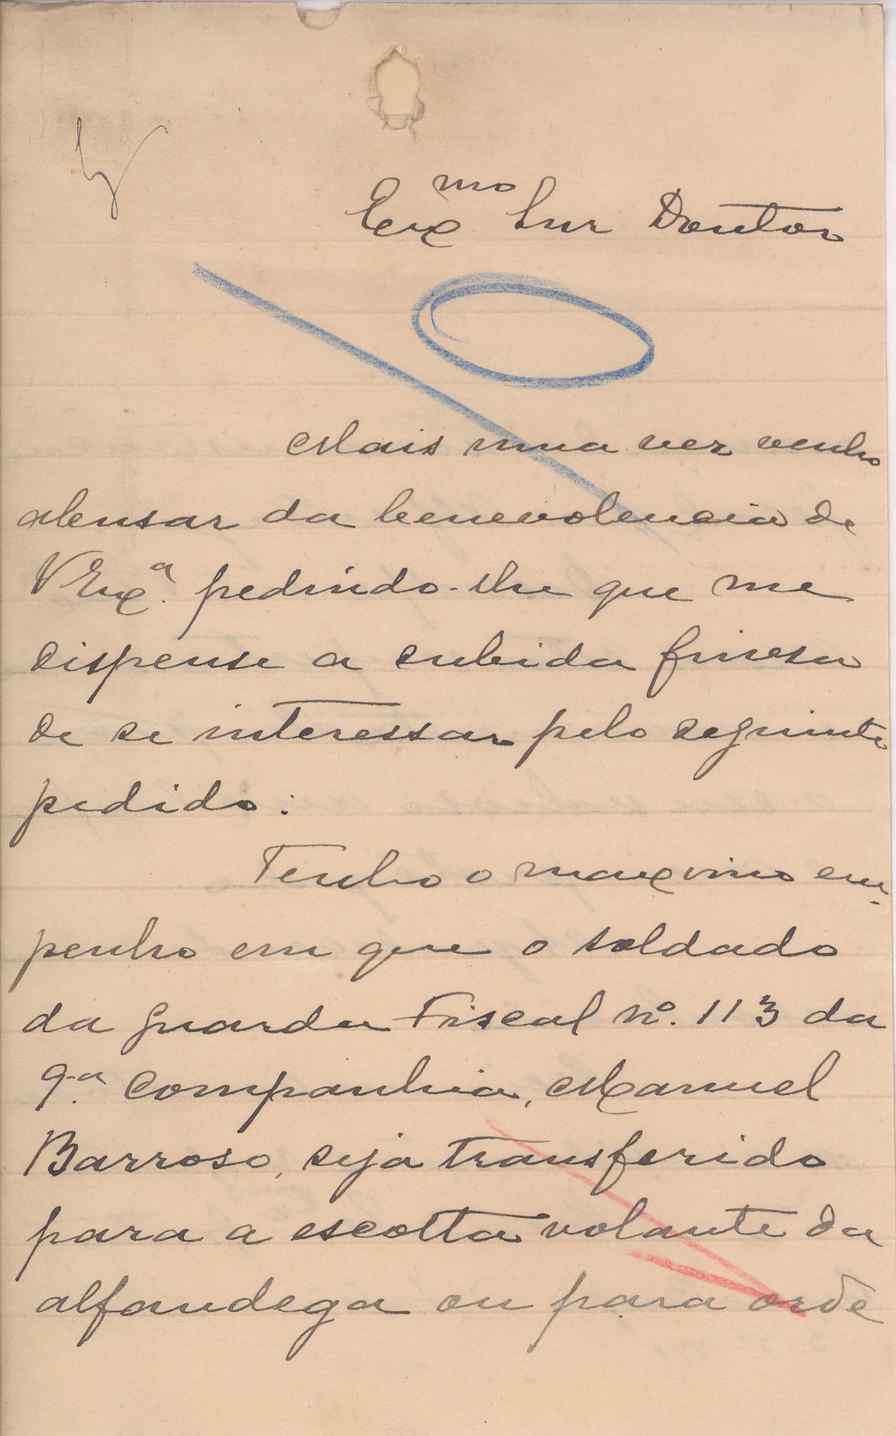 Exmo Snr Doutor
Mais uma vez venho
abusar da benevolencia de
V Exª. pedindo-lhe que me
dispense a subida finesa
de se interessar pelo seguinte
pedido:
Tenho o maximo em-
penho em que o soldado
da guarda Fiscal nº. 113 da
9ª. companhia, Manuel
Barroso, seja transferido
para a escolta volante da
alfandega ou para orde